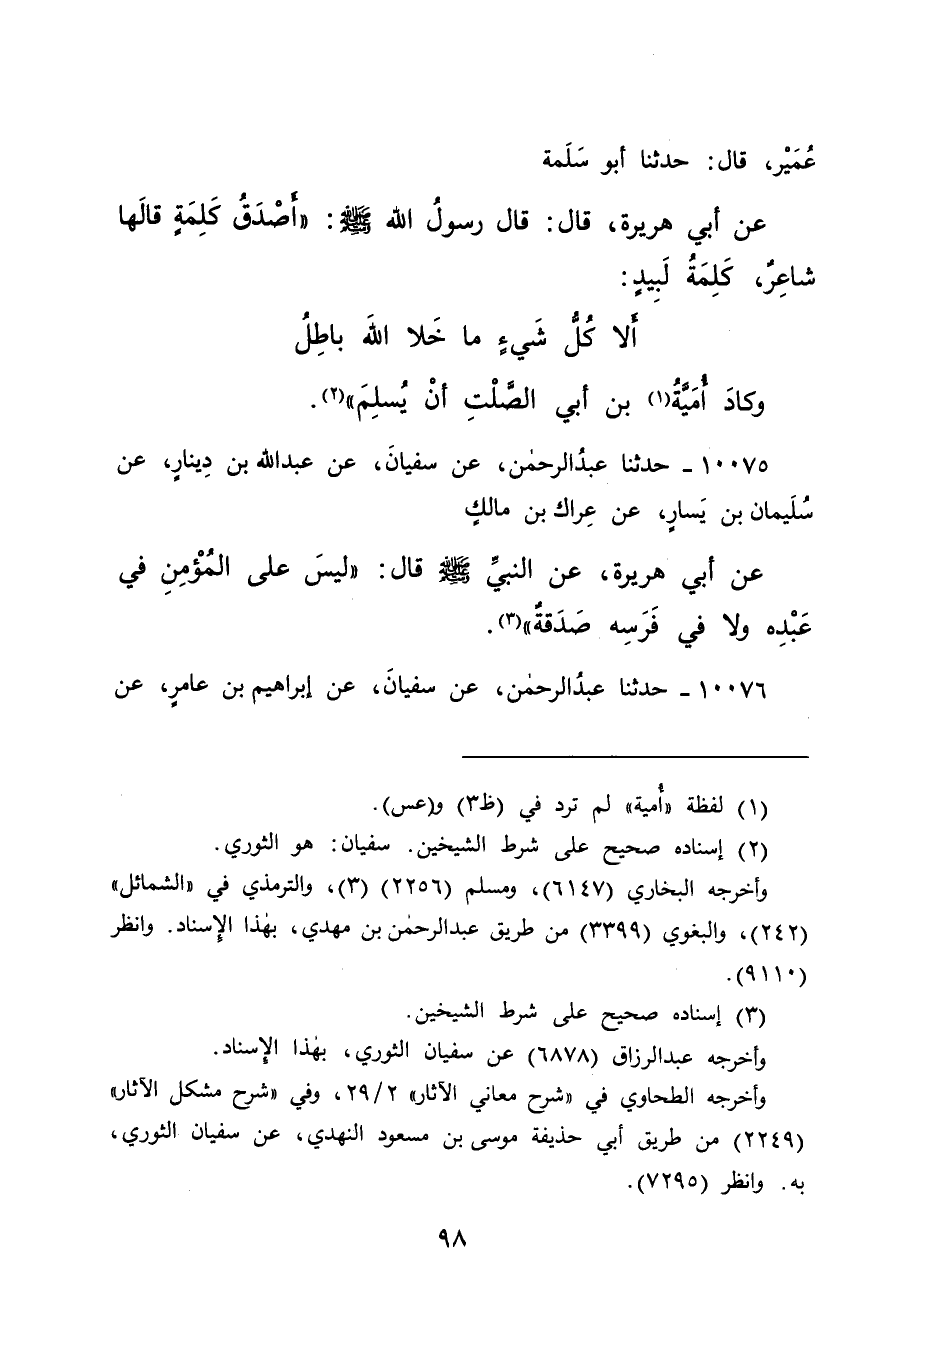 عُمَيْر، قال: حدثنا أبو سَلَمة
عن أبي هريرة، قال: قال رسولُ الله ﷺ: «أَصْدَقُ كَلِمَةٍ قالَها
شاعِرٌ، كَلِمَةُ لَبِيدٍ:
أَلا كُلُّ شَيءٍ ما خَلا اللهَ باطِلُ
وكادَ أُمَيَّةُ(١) بن أبي الصَّلْتِ أنْ يُسلِمَ»(٢).
١٠٠٧٥ ـ حدثنا عبدُالرحمٰن، عن سفيانَ، عن عبدالله بن دِينارٍ، عن
سُلَيمان بن يَسارٍ، عن عِراك بن مالكٍ
عن أبي هريرة، عن النبيِّ ﷺ قال: «ليسَ على المُؤْمِنِ في
عَبْدِه ولا في فَرَسِه صَدَقةٌ»(٣).
١٠٠٧٦ ـ حدثنا عبدُالرحمٰن، عن سفيانَ، عن إبراهيم بن عامرٍ، عن
(١) لفظة «أُمية» لم ترد في (ظ٣) و(عس).
(٢) إسناده صحيح على شرط الشيخين. سفيان: هو الثوري.
وأخرجه البخاري (٦١٤٧)، ومسلم (٢٢٥٦) (٣)، والترمذي في «الشمائل»
(٢٤٢)، والبغوي (٣٣٩٩) من طريق عبدالرحمٰن بن مهدي، بهٰذا الإِسناد. وانظر
(٩١١٠).
(٣) إسناده صحيح على شرط الشيخين.
وأخرجه عبدالرزاق (٦٨٧٨) عن سفيان الثوري، بهٰذا الإِسناد.
وأخرجه الطحاوي في «شرح معاني الآثار» ٢٩/٢، وفي «شرح مشكل الآثار»
(٢٢٤٩) من طريق أبي حذيفة موسى بن مسعود النهدي، عن سفيان الثوري،
به. وانظر (٧٢٩٥).
٩٨